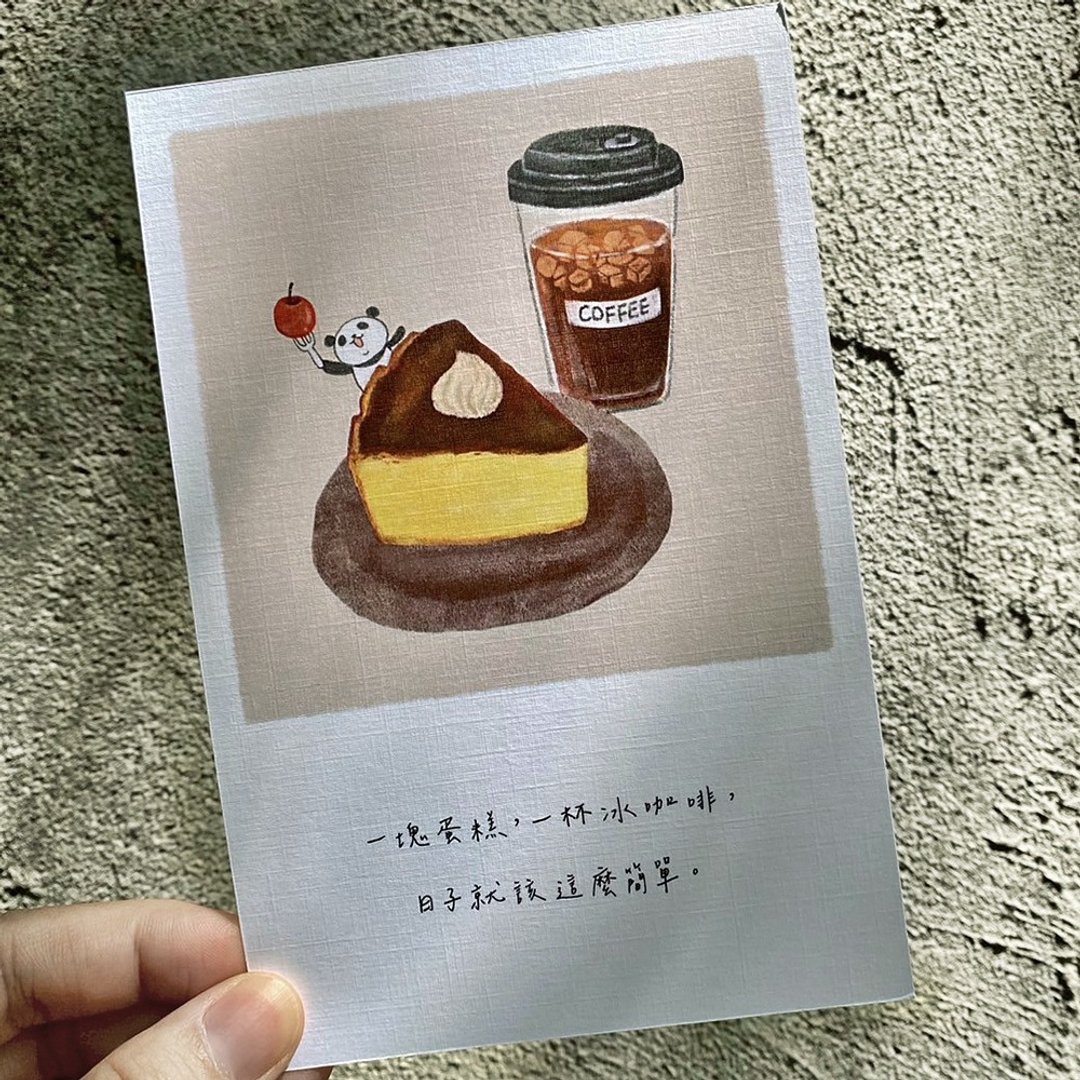 COFFEE
一塊蛋糕，一杯冰咖啡，
日子就該這麼簡單。